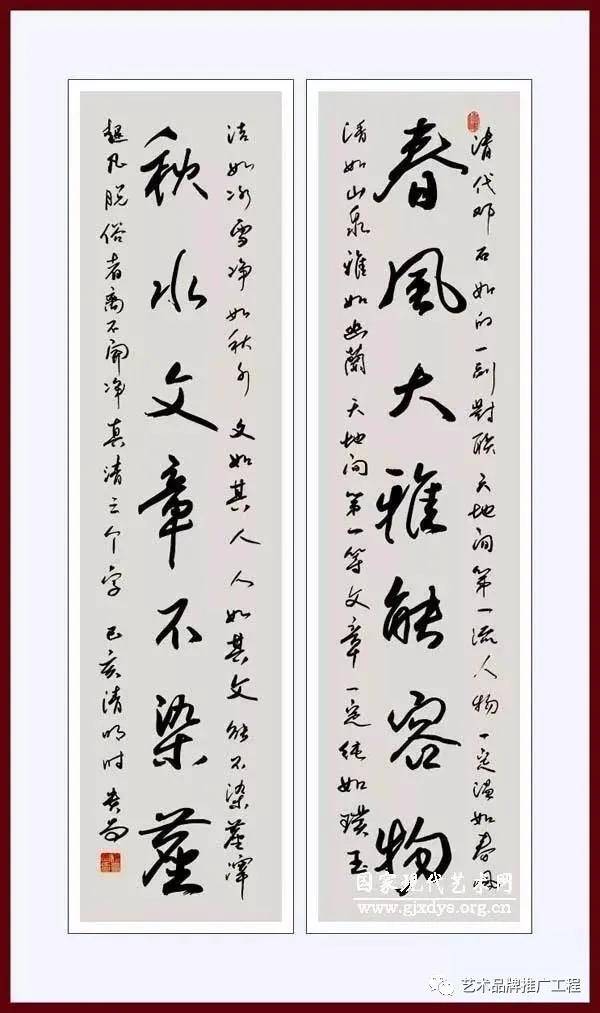 清代邓石如的一副對联 天地间第一流人物 一定温如春风
春風大雅能容物
清如山泉 雅如幽蘭 天地间第一等文章 一定纯如璞玉
洁如冰雪 净如秋水 文如其人 人如其文 能不染塵滓
秋水文章不染塵
超凡脱俗者离不開净真清三个字 己亥清明时
国家现代艺术网
www.gjxdys.org.cn
艺术品牌推广工程